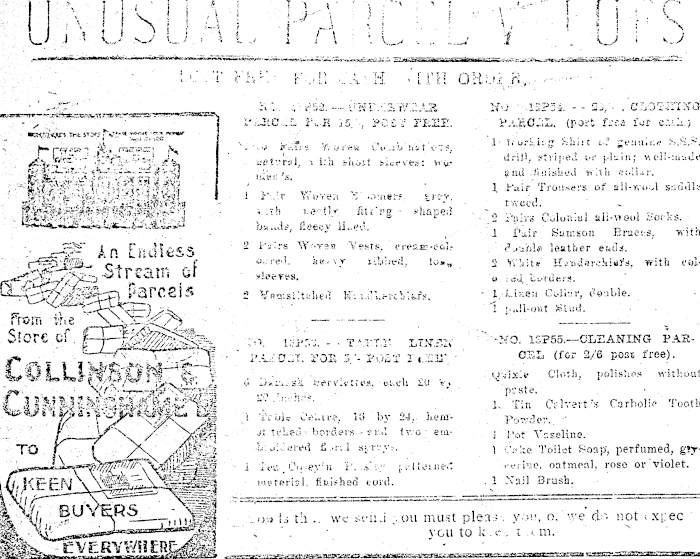 UNUSUAL PARCEL
POST FREE FOR CASH WITH ORDER.
An Endless
Stream of
Parcels
From the
Store of
COLLINSON &
CUNNINGHAME
TO
KEEN
BUYERS
EVERYWHERE
UNDERWEAR
PARCEL FOR 15/, POST FREE.
Pairs Woven Combinations,
natural, with short sleeves; wo-
men's.
1 Pair Woven Bloomers grey,
with neatly fitting shaped
bands, fleecy lined.
2 Pairs Woven Vests, cream-col-
oured, heavy ribbed, long
sleeves.
2 Hemstitched Handkerchiefs.
TABLE LINEN
PARCEL FOR 5/- POST FREE
6 Damask Serviettes, each 20 by
20 inches.
1 Table Centre, 16 by 24, hem-
stitched borders and two em-
broidered floral sprays.
1 Tea Cosey in Paisley patterned
material, finished cord.
CLOTHING
PARCEL. (post free for cash.)
1 Working Shirt of genuine S.S.S.
drill, striped or plain; well-made
and finished with collar.
1 Pair Trousers of all-wool saddle
tweed.
2 Pairs Colonial all-wool Socks.
1 Pair Samson Braces, with
double leather ends.
2 White Handerchiefs, with col-
ored borders.
1 Linen Collar, double.
1 pull-out Stud.
NO. 12P55.—CLEANING PAR-
CEL (for 2/6 post free).
Quixie Cloth, polishes without
paste.
1 Tin Calvert's Carbolic Tooth
Powder.
1 Pot Vaseline.
1 Cake Toilet Soap, perfumed, gly-
cerine, oatmeal, rose or violet.
1 Nail Brush.
we send you must please you, or we do not expec
you to keep them.